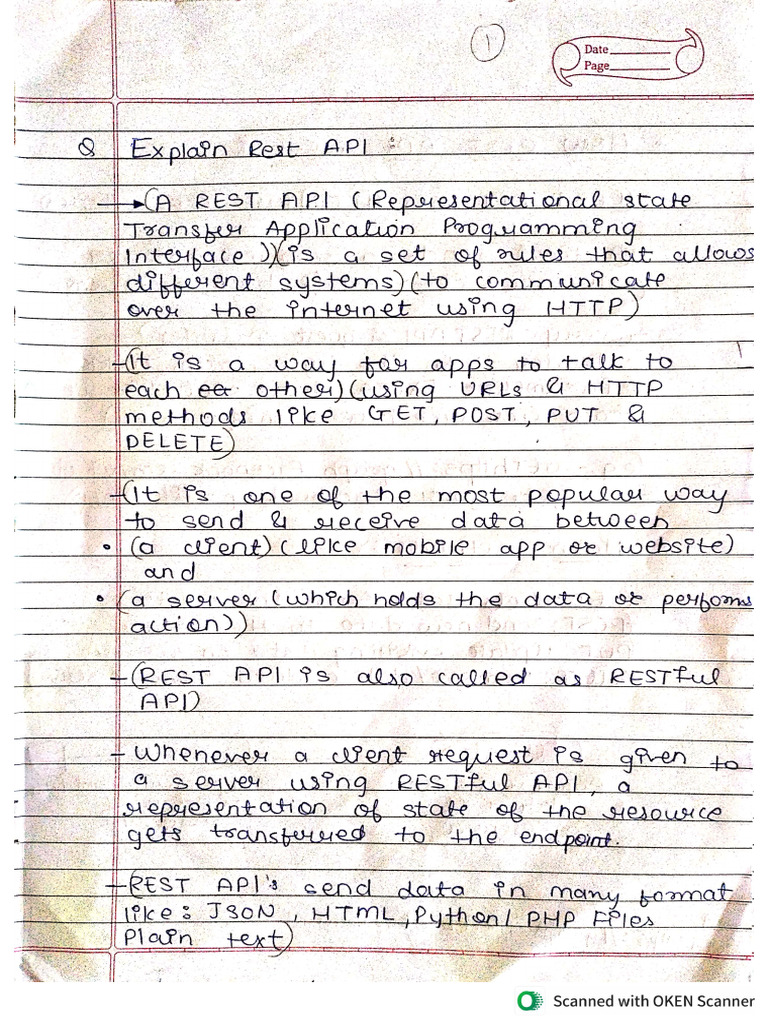 1
Date
Page
Q Explain Rest API :
→(A REST API (Representational state
Transfer Application Programming
Interface))(is a set of rules that allows
different systems)(to communicate
over the internet using HTTP)
-(It is a way for apps to talk to
each other)(using URLs & HTTP
methods like GET, POST, PUT &
DELETE)
-(It is one of the most popular way
to send & receive data between
• (a client)(like mobile app or website)
and
• (a server (which holds the data or performs
action))
-(REST API is also called as RESTful
API)
- Whenever a client request is given to
a server using RESTful API, a
representation of state of the resource
gets transferred to the endpoint.
-(REST API's send data in many format
like: JSON, HTML, Python/ PHP Files
Plain text)
Scanned with OKEN Scanner